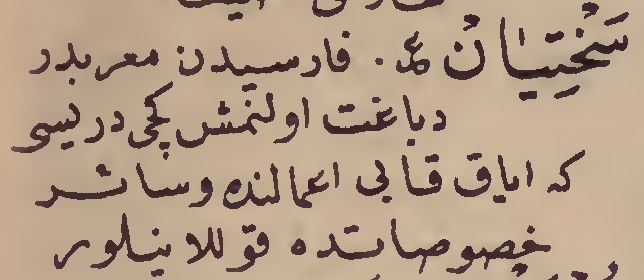 سَخْتِيَان ع. فارسيدن معربدر
دباغت اولنمش كچى دريسى
كه اياق قابى اعمالنده وسائر
خصوصاتده قوللانيلور